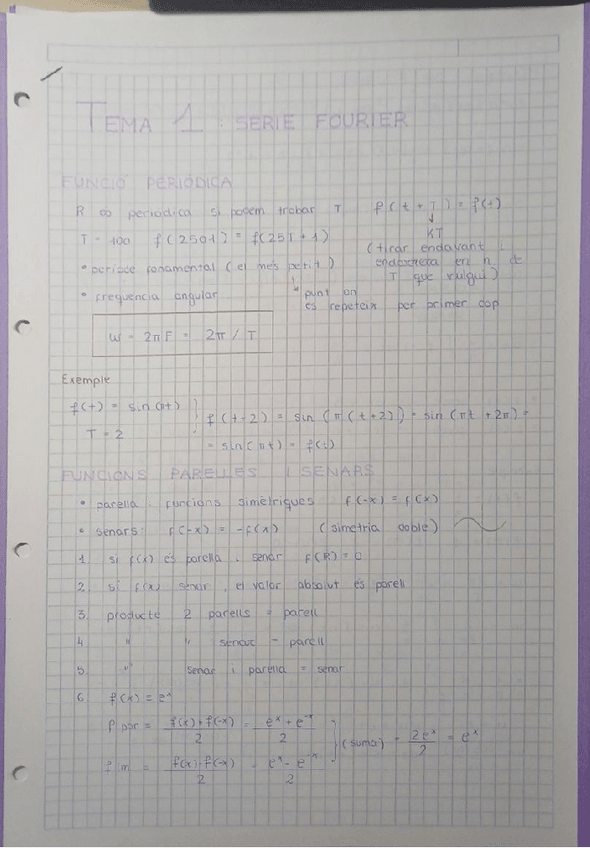 TEMA 1 : SERIE FOURIER
FUNCIÓ PERIÒDICA
R és periodica si podem trobar T f(t+T) = f(t)
↓
KT
T = 100 f(2501) = f(25T+1)
(tirar endavant i
endarrera en n de
T que vulgui)
• període fonamental (el més petit)
↳ punt on
es repeteix per primer cop
• frequencia angular
W = 2πF = 2π / T
Exemple
f(t) = sin(πt)
T = 2
f(t+2) = sin(π(t+2)) = sin(πt+2π) =
= sin(πt) = f(t)
FUNCIONS PARELLES I SENARS
• parella : funcions simètriques f(-x) = f(x)
• senars: f(-x) = -f(x) (simetria doble)
1. si f(x) és parella i senar f(R) = 0
2. si f(x) senar, el valor absolut és parell
3. producte 2 parells = parell
4. " " senar = parell
5. " senar i parella = senar
6. f(x) = e^x
f par = f(x)+f(-x) / 2 = e^x + e^-x / 2
(suma) = 2e^x / 2 = e^x
f(x)-f(-x) / 2 = e^x - e^-x / 2